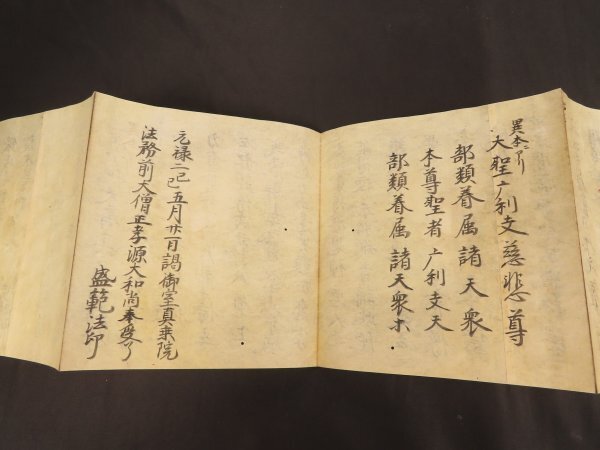 異本ニアリ
大聖广利支慈悲尊
部類眷属諸天衆
本尊聖者广利支天
部類眷属諸天衆等
元禄二己巳五月廿一日謁御室真乗院
法務前大僧正孝源大和尚奉受了
盛範法印